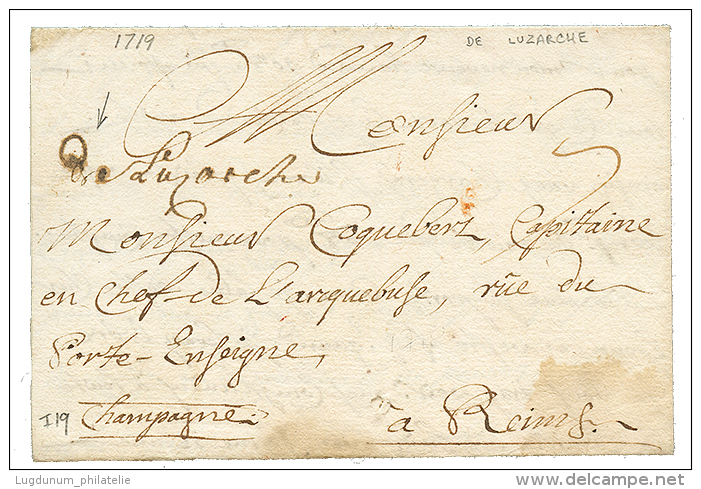 1719
DE LUZARCHE
Monsieur
de Luzarche
Monsieur Coquebert, Capitaine
en Chef de L'arquebuse, rüe du
Porte-Enseigne,
I19 Champagne.
a Reims.
Lugdunum_philatelie
www.delcampe.net